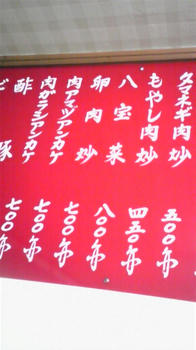 タマネギ肉炒 五〇〇円
もやし肉炒 四五〇円
八宝菜 八〇〇円
卵肉炒 七〇〇円
肉アマズアンカケ 七〇〇円
肉ガラシアンカケ 七〇〇円
酢豚